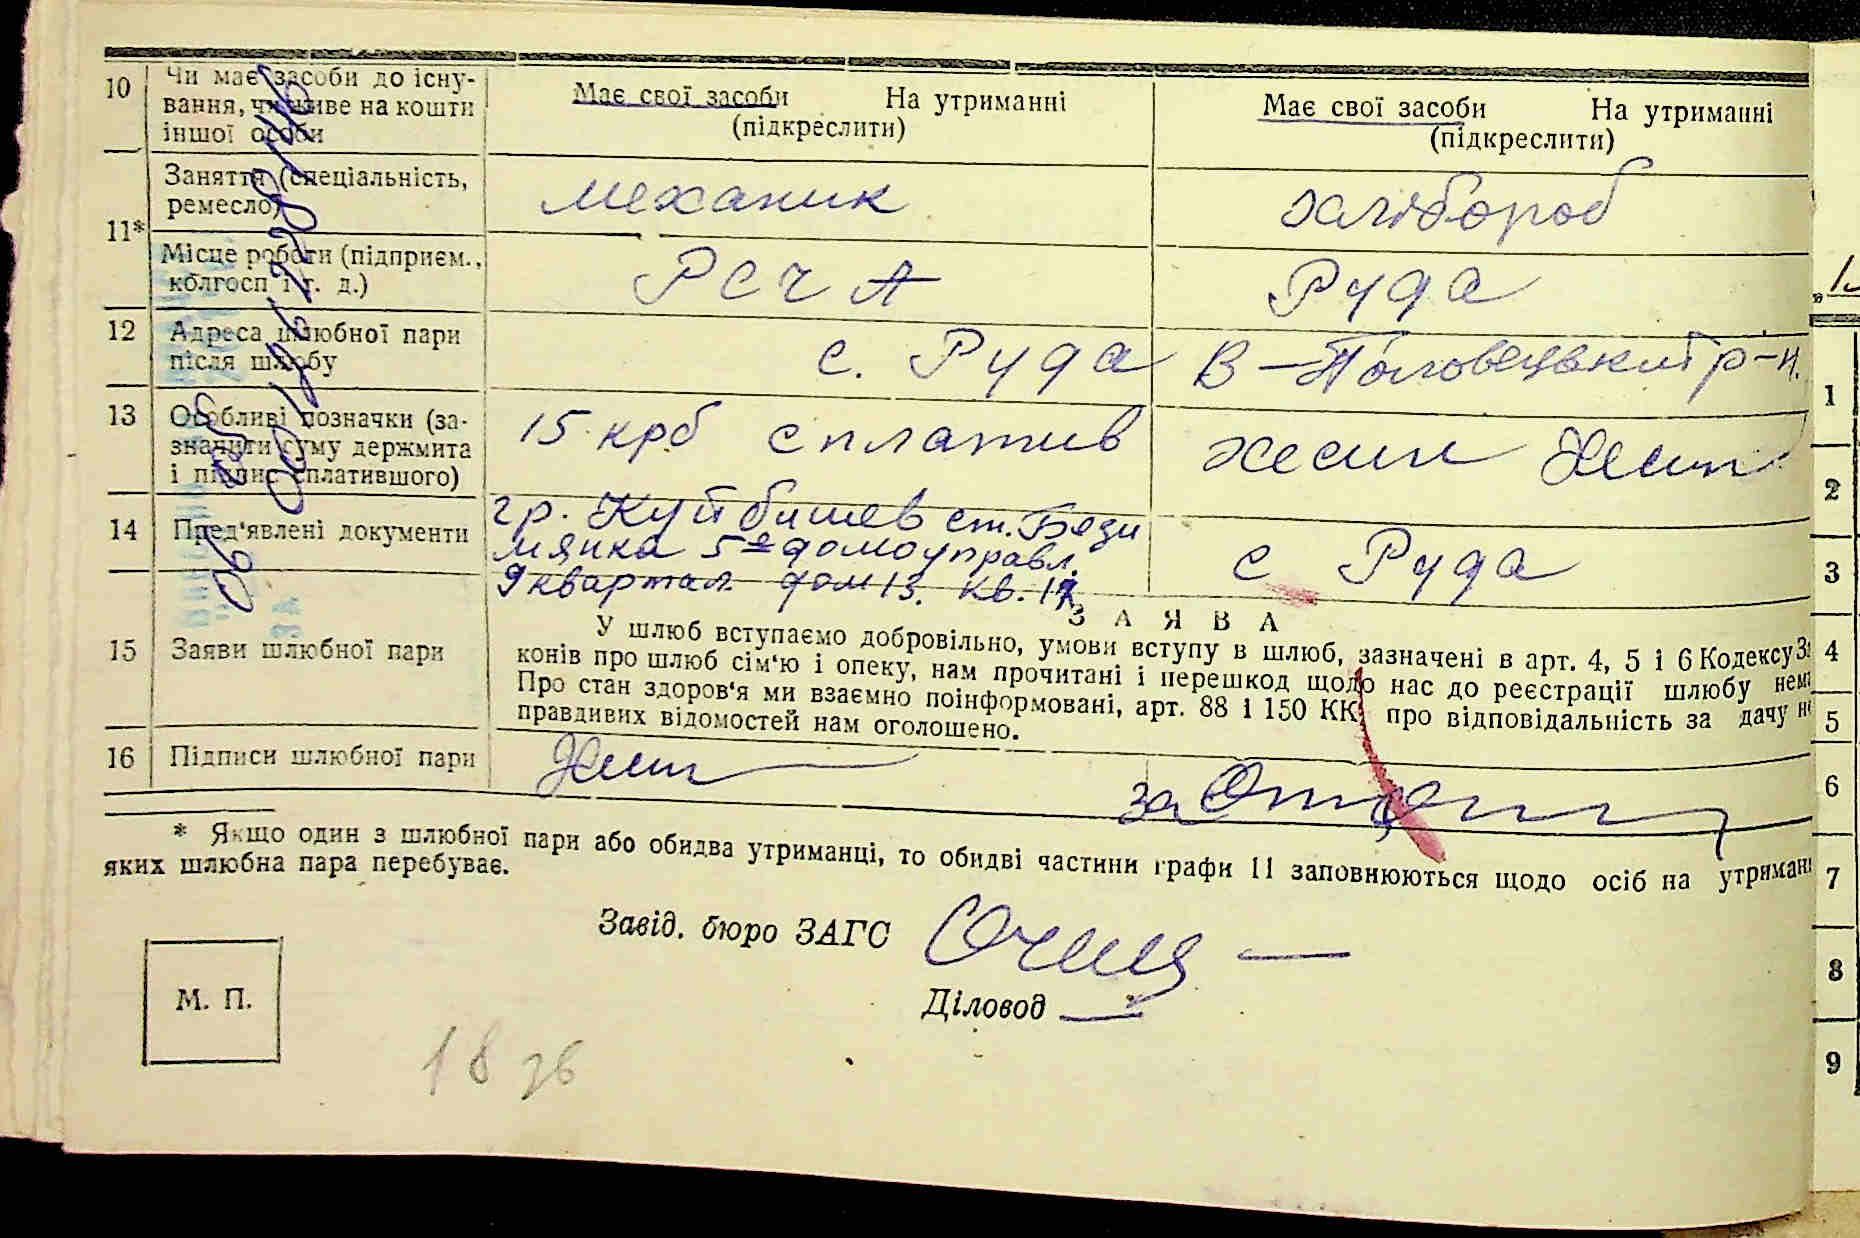 10 Чи має засоби до існу-
вання, чи живе на кошти
іншої особи
Має свої засоби На утриманні
(підкреслити)
Має свої засоби На утриманні
(підкреслити)
11*
Заняття (спеціальність,
ремесло)
механик
хлібороб
Місце роботи (підприєм.,
колгосп і т. д.)
РСЧА
Руда
12 Адреса шлюбної пари
після шлюбу
с. Руда В-Половецький р-н.
13 Особливі позначки (за-
значити суму держмита
і підпис сплатившого)
15 крб сплатив
14 Пред'явлені документи
гр. Куйбишев ст. Бези
мянка 5е домоуправл.
9 квартал дом 13. кв. 17
с Руда
15 Заяви шлюбної пари
ЗАЯВА
У шлюб вступаємо добровільно, умови вступу в шлюб, зазначені в арт. 4, 5 і 6 Кодексу
конів про шлюб сім'ю і опеку, нам прочитані і перешкод щодо нас до реєстрації шлюбу
Про стан здоров'я ми взаємно поінформовані, арт. 88 і 150 КК, про відповідальність за дачу
правдивих відомостей нам оголошено.
16 Підписи шлюбної пари
за
* Якщо один з шлюбної пари або обидва утриманці, то обидві частини графи 11 заповнюються щодо осіб на
яких шлюбна пара перебуває.
Завід. бюро ЗАГС
Діловод
М. П.
18
1
2
3
4
5
6
7
8
9